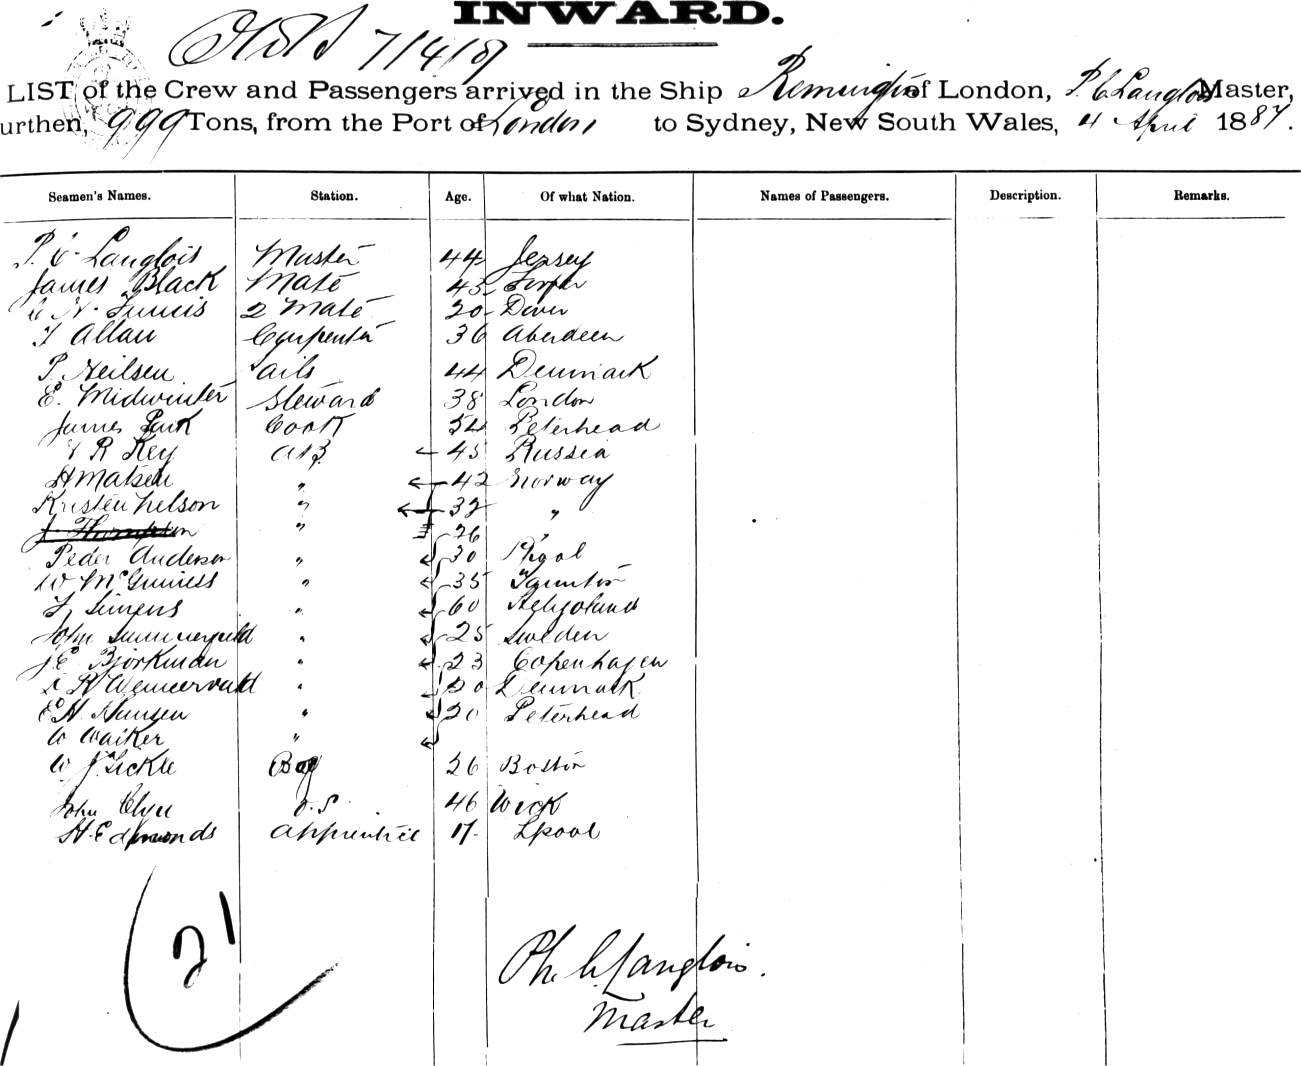 INWARD.
7/4/87
LIST of the Crew and Passengers arrived in the Ship Remington of London, P. C Langlois Master,
urthen, 999 Tons, from the Port of London to Sydney, New South Wales, 4 April 1887.
Seamen's Names. Station. Age. Of what Nation. Names of Passengers. Description. Remarks.
P. C. Langlois Master 44 Jersey
James Black Mate 43
C N. 2 Mate 20 Dover
T Allan Carpenter 36 Aberdeen
P. Neilsen Sails 44 Denmark
E. Midwinter Steward 38 London
James Park Cook 54 Peterhead
R Key AB 45 Russia
H Matsen " 42 Norway
Kristen Nelson " 32 "
J Thompson " 26 "
Peder Anderson " 30
W McGuiness " 35 Taunton
Simens " 60 Heligoland
John Summerfield " 25 Sweden
J E Bjorkman " 23 Copenhagen
K Wennervald " 20 Denmark
E H. Hansen " 20 Peterhead
W Walker "
W J. Tickle Boy 26 Boston
John Clyne O.S. 46 Wick
H. Edmonds Apprentice 17 Lpool
21
Ph. C. Langlois.
Master